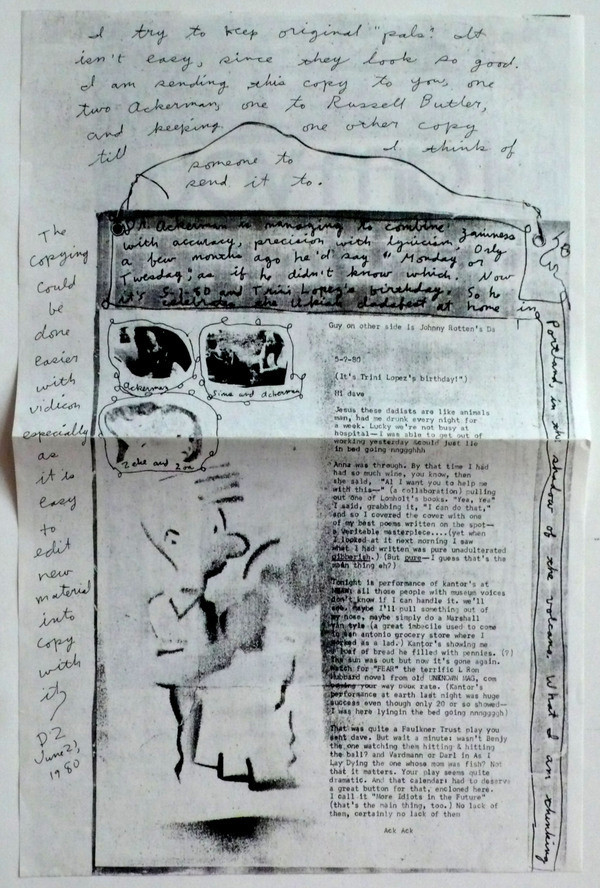 I try to keep original "pals." It
isn't easy, since they look so good.
I am sending this copy to you, one
two Ackerman, one to Russell Butler,
and keeping one other copy
till I think of
someone to
send it to.
Dr. Ackerman is managing to combine zaniness
with accuracy, precision with lyricism. Only
a few months ago he'd say "Monday or
Tuesday," as if he didn't know which. Now
it's 5-2-80 and Trini Lopez's birthday. So he
celebrates the usual dadafest at home in
Portland, in the shadow of the volcano. What I am thinking
The
Copying
Could
be
done
easier
with
vidicon
especially
as
it is
easy
to
edit
new
material
into
copy
with
it
DZ
June 23,
1980
Ackerman
Sime and Ackerman
Zeke and Zoe
Guy on other side is Johnny Rotten's Da
5-2-80
(It's Trini Lopez's birthday!")
Hi dave
Jesus these dadists are like animals
man, had me drunk every night for
a week. Lucky we're not busy at
hospital—I was able to get out of
working yesterday &could just lie
in bed going nnggghhh
Anna was through. By that time I had
had so much wine, you know, then
she said, "Al I want you to help me
with this—" (a collaboration) pulling
out one of Lomholt's books. "Yea, Yes"
I said, grabbing it, "I can do that,"
and so I covered the cover with one
of my best poems written on the spot—
a veritable masterpiece....(yet when
I looked at it next morning I saw
what I had written was pure unadulterated
gibberish.) (But pure—I guess that's the
main thing eh?)
Tonight is performance of kantor's at
all those people with museum voices
don't know if I can handle it. we'll
see. maybe I'll pull something out of
my nose, maybe simply do a Marshall
tyle (a great imbecile used to come
to san antonio grocery store where I
worked as a lad.) Kantor's showing me
loaf of bread he filled with pennies. (?)
The sun was out but now it's gone again.
Watch for "FEAR" the terrific L Ron
Hubbard novel from old UNKNOWN MAG, com
your way book rate. (Kantor's
performance at earth last night was huge
success even though only 20 or so showed—
I was here lyingin the bed going nnngggh)
That was quite a Faulkner Trust play you
sent dave. But wait a minute: wasn't Benjy
the one watching them hitting & hitting
the ball? and Vardmann or Darl in As I
Lay Dying the one whose mom was fish? Not
that it matters. Your play seems quite
dramatic. And that calendar: had to deserve
a great button for that, enclosed here.
I call it "More Idiots in the Future"
(that's the main thing, too.) No lack of
them, certainly no lack of them
Ack Ack